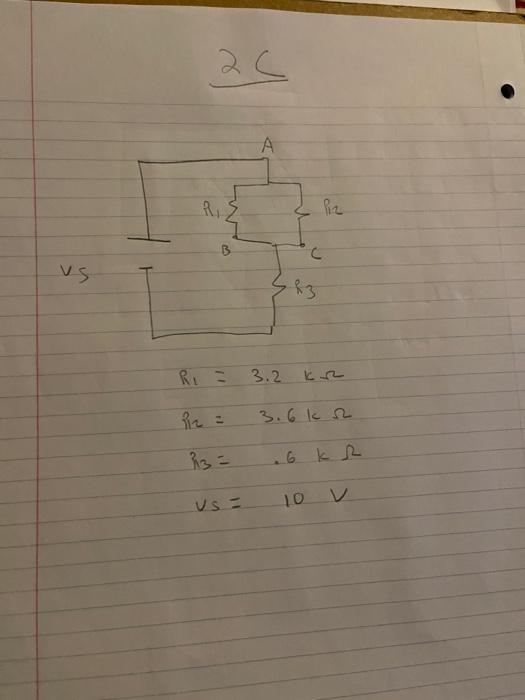 2C
A
R1
R2
B
C
VS
R3
R1 = 3.2 kΩ
R2 = 3.6 kΩ
R3 = .6 kΩ
VS = 10 V